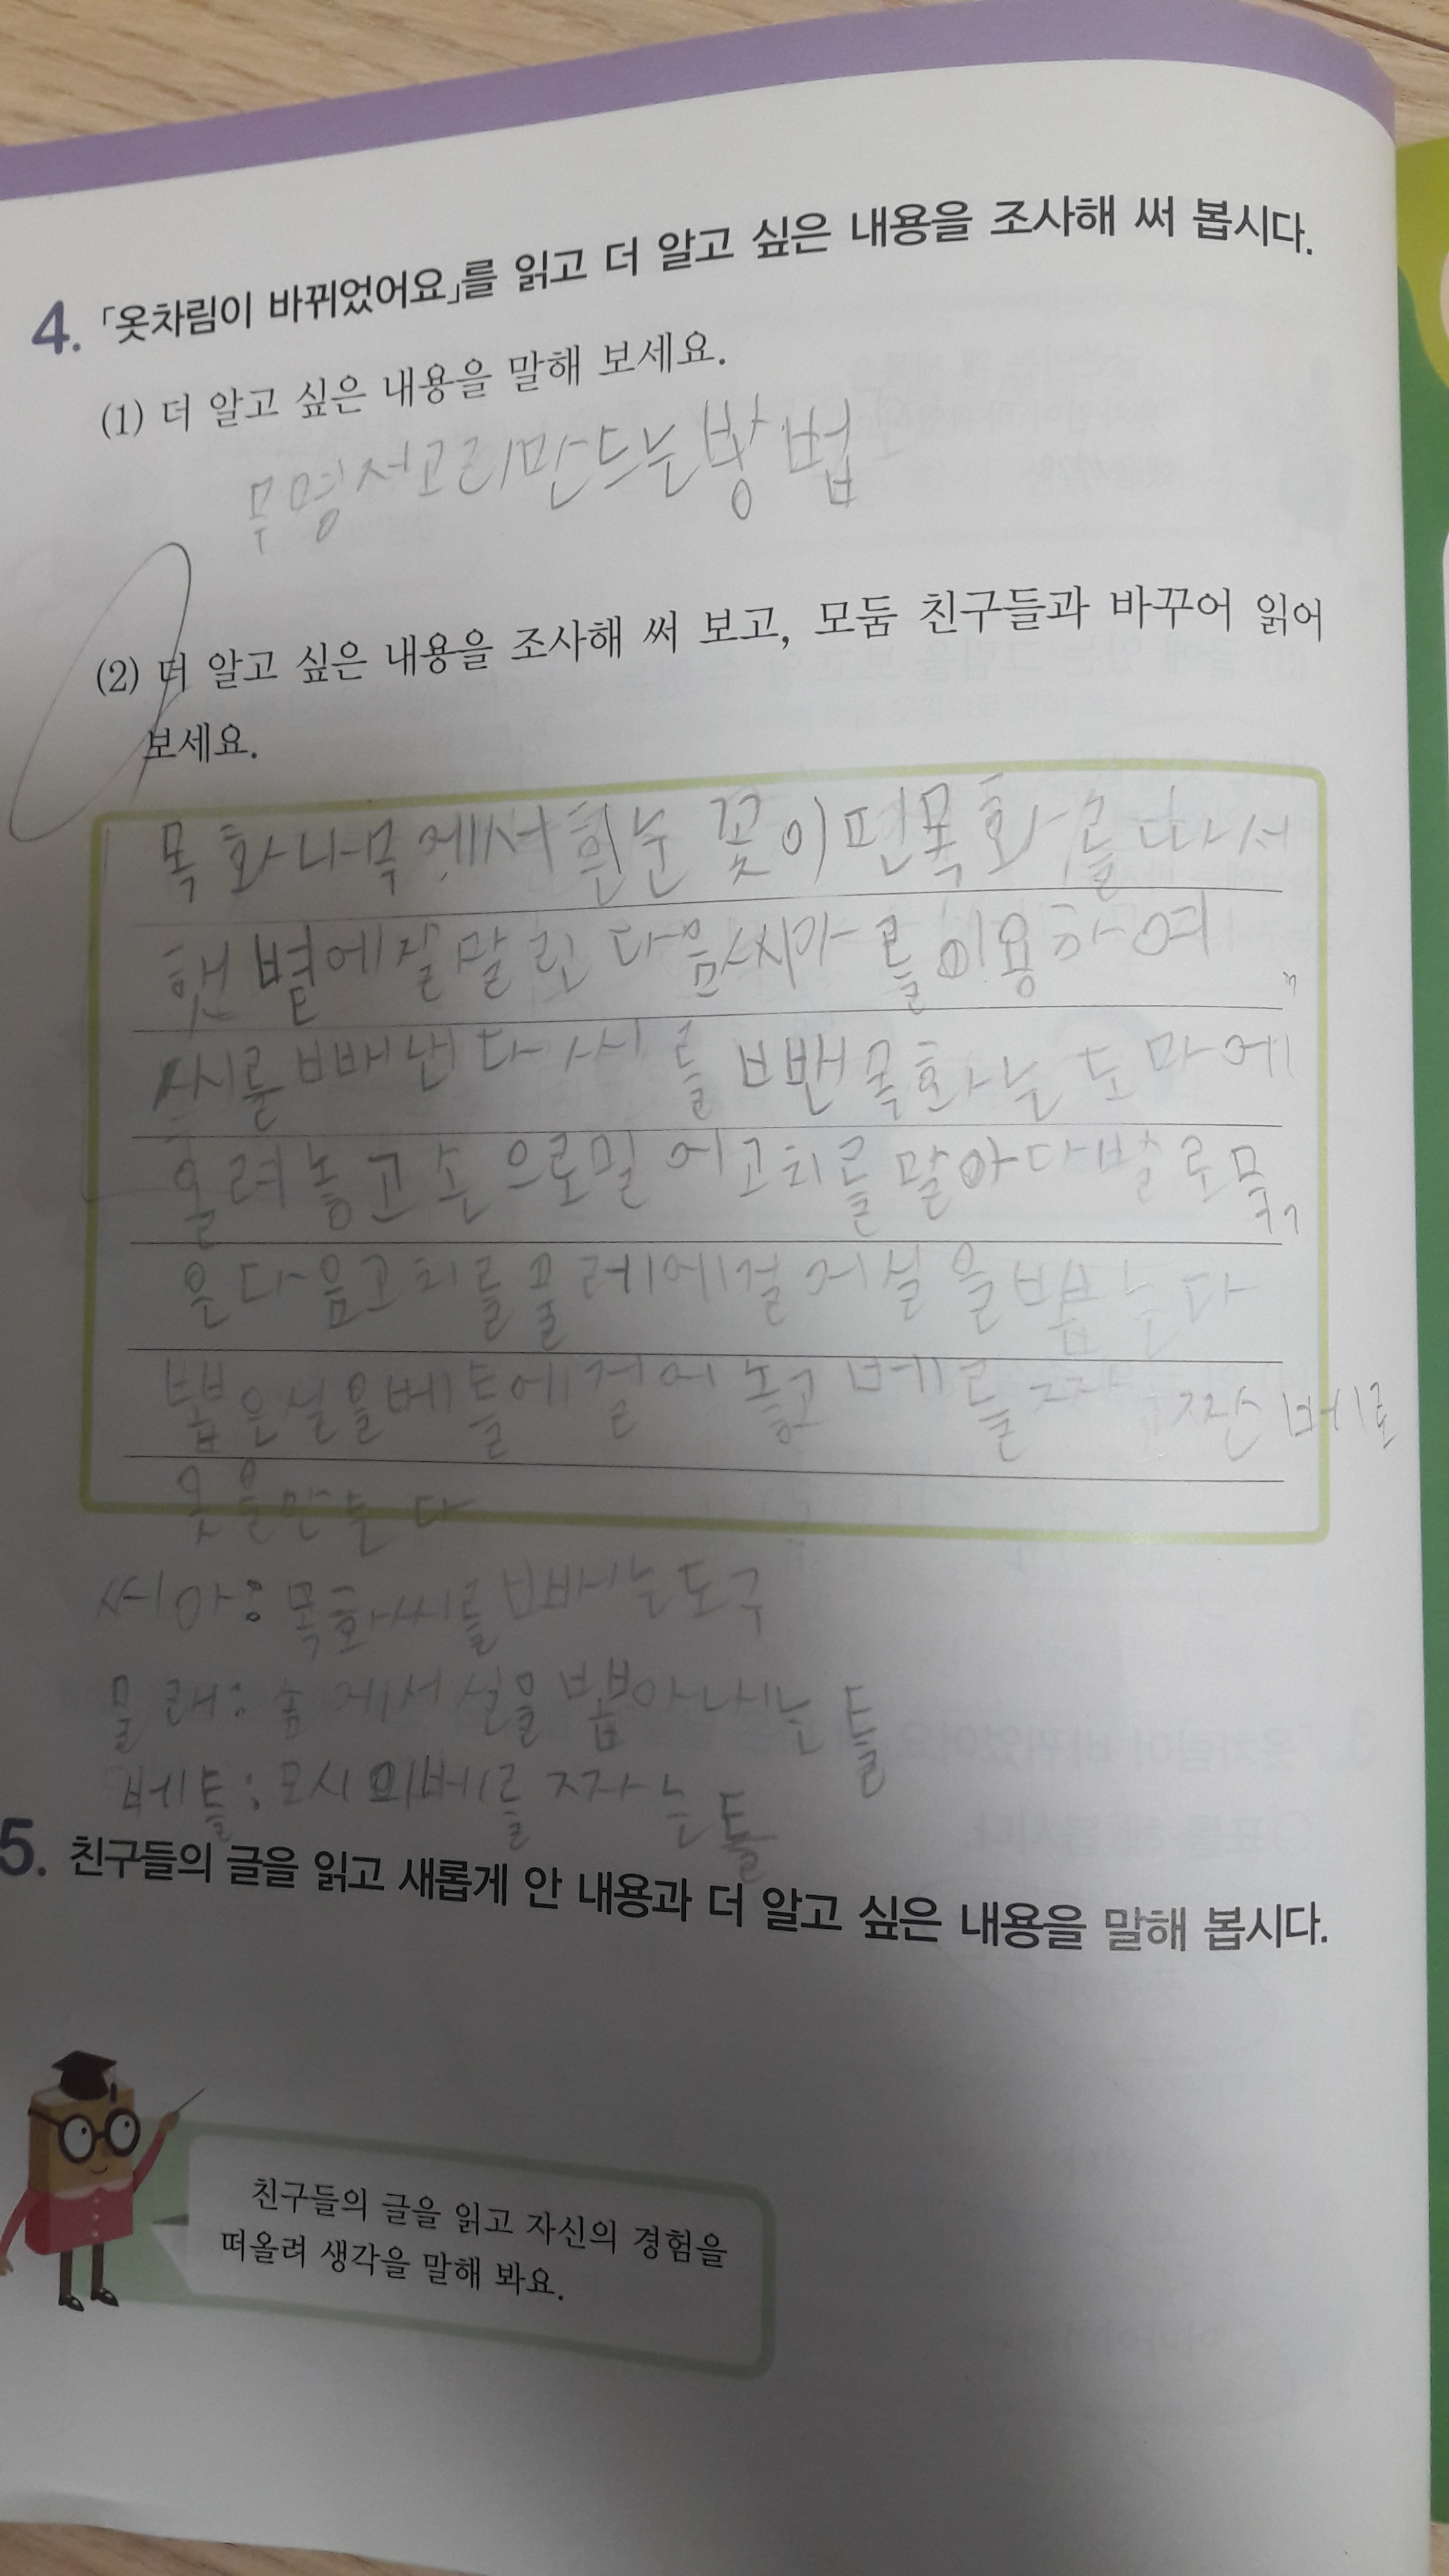 4. 「옷차림이 바뀌었어요」를 읽고 더 알고 싶은 내용을 조사해 써 봅시다.
(1) 더 알고 싶은 내용을 말해 보세요.
무명저고리만드는방법
(2) 더 알고 싶은 내용을 조사해 써 보고, 모둠 친구들과 바꾸어 읽어
보세요.
목화나무에서흰눈꽃이핀목화를따서
햇볕에잘말린다음씨아를이용하여
씨를빼낸다씨를뺀목화는도마에
올려놓고손으로밀어고치를말아다발로묶
은다음고치를물레에걸어실을뽑는다
뽑은실을베틀에걸어놓고베를짜 짠베로
옷을만든다
씨아:목화씨를빼는도구
물래:솜에서실을뽑아내는틀
베틀:모시 베를짜는틀
5. 친구들의 글을 읽고 새롭게 안 내용과 더 알고 싶은 내용을 말해 봅시다.
친구들의 글을 읽고 자신의 경험을
떠올려 생각을 말해 봐요.